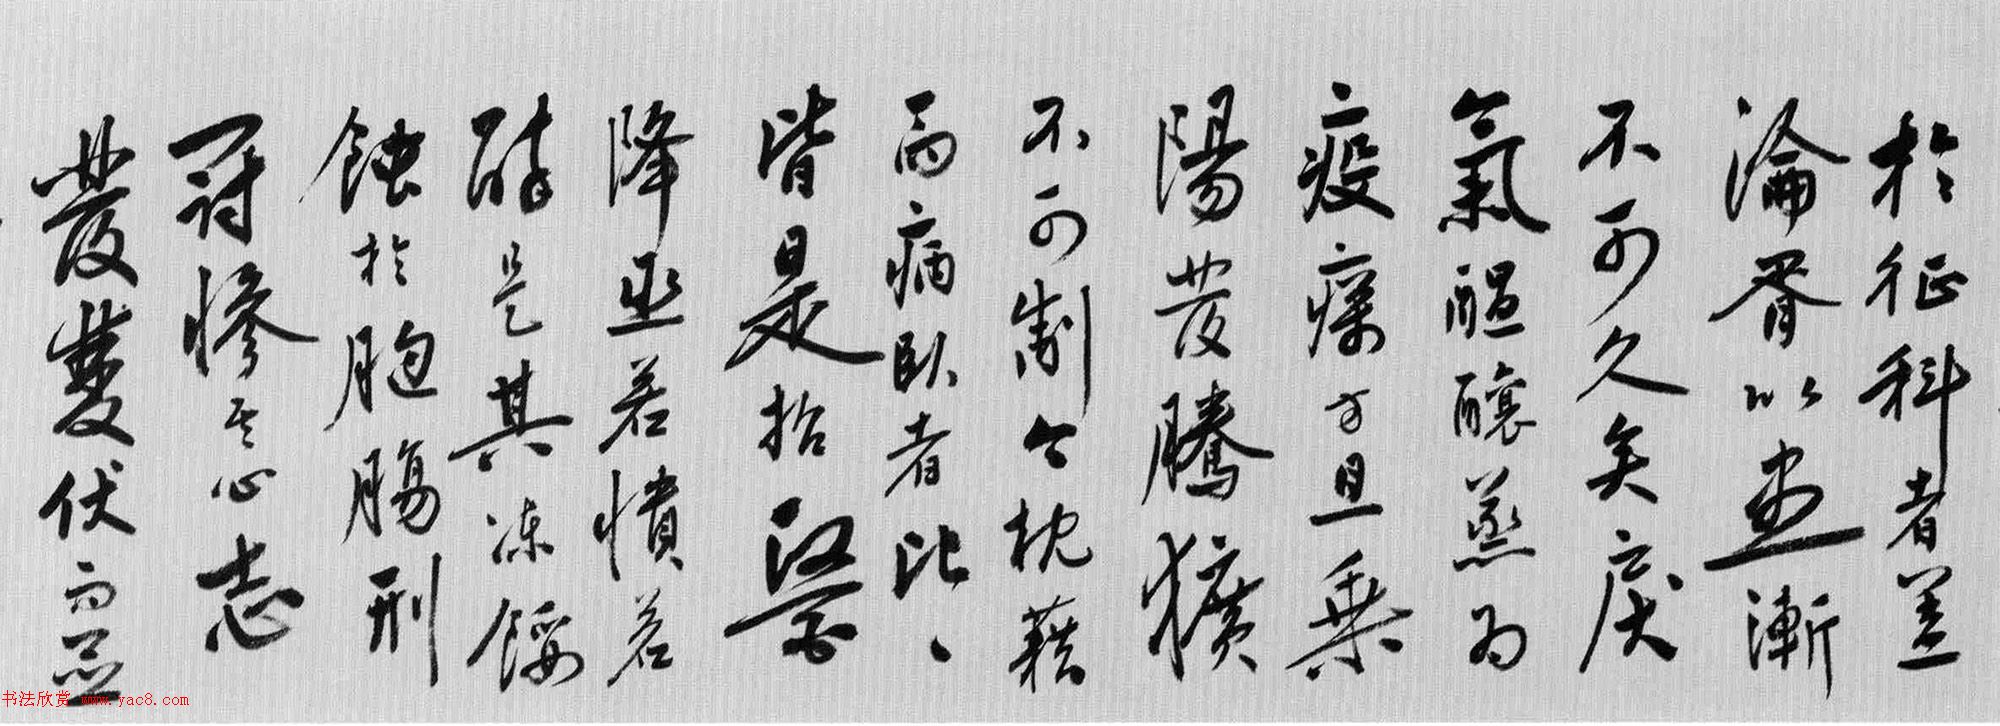 於征科者盖
淪胥以盡漸
不可久矣戾
氣醞釀蒸為
疫癘方且乘
陽發騰獷
不可制今枕藉
而病臥者比比
皆是招醫
降巫若憒若
醉是其凍餒
蝕於胞腸刑
罸慘其心志
發伏而
书法欣赏 www.yac8.com